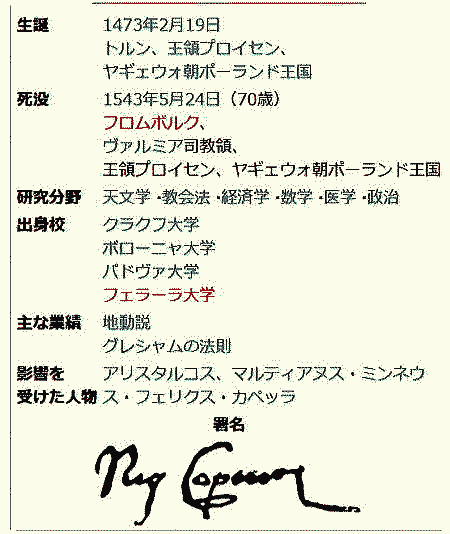 生誕 1473年2月19日
トルン、王領プロイセン、
ヤギェウォ朝ポーランド王国
死没 1543年5月24日（70歳）
フロムボルク、
ヴァルミア司教領、
王領プロイセン、ヤギェウォ朝ポーランド王国
研究分野 天文学・教会法・経済学・数学・医学・政治
出身校 クラクフ大学
ボローニャ大学
パドヴァ大学
フェラーラ大学
主な業績 地動説
グレシャムの法則
影響を アリスタルコス、マルティアヌス・ミンネウ
受けた人物 ス・フェリクス・カペッラ
署名